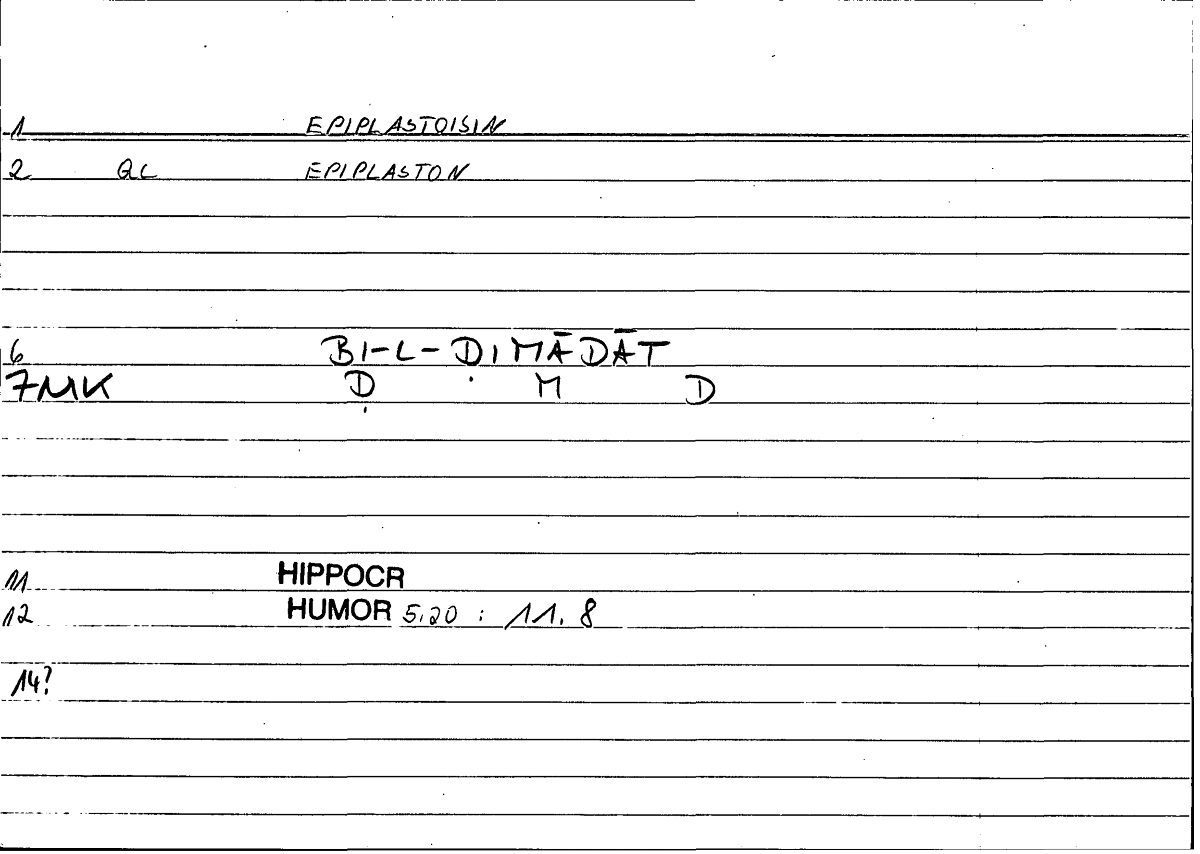 1 EPIPLASTOISIN
2 QL EPIPLASTON
6 BI-L-ḌIMĀDĀT
7MK Ḍ M D
11 HIPPOCR
12 HUMOR 5,20 : 11.8
14?